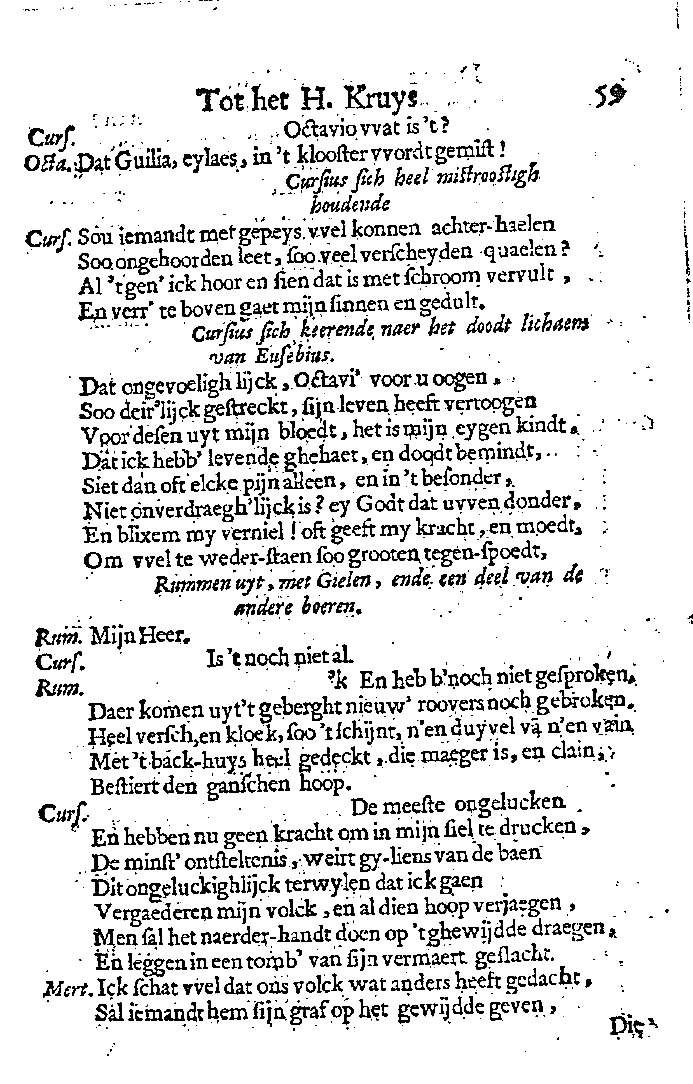 Tot het H. Kruys 59
Curs. Octavio vvat is 't?
Octa. Dat Guilia, eylaes, in 't klooster vvordt gemist!
Cursius sich heel mistroostigh
houdende
Curs. Sou iemandt met gepeys vvel konnen achter-haelen
Soo ongehoorden leet, soo veel verscheyden quaelen?
Al 'tgen' ick hoor en sien dat is met schroom vervult,
En verr' te boven gaet mijn sinnen en gedult.
Cursius sich keerende naer het doodt lichaem
van Eusebius.
Dat ongevoeligh lijck, Octavi' voor u oogen,
Soo deir'lijck gestreckt, sijn leven heeft vertoogen
Voor desen uyt mijn bloedt, het is mijn eygen kindt,
Dat ick hebb' levende ghehaet, en doodt bemindt,
Siet dan oft elcke pijn alleen, en in 't besonder,
Niet onverdraegh'lijck is? ey Godt dat uvven donder,
En blixem my verniel! oft geeft my kracht, en moedt,
Om vvel te weder-staen soo grooten tegen-spoedt,
Rummen uyt, met Gielen, ende een deel van de
andere boeren.
Rum. Mijn Heer.
Curs. Is 't noch niet al.
Rum. 'k En heb b'noch niet gesproken,
Daer komen uyt't geberght nieuw' roovers noch gebroken.
Heel versch, en kloek, soo 't schijnt, n'en duyvel vã n'en vain
Met 't back-huys heel gedeckt, die maeger is, en clain,
Bestiert den ganschen hoop.
Curs. De meeste ongelucken
En hebben nu geen kracht om in mijn siel te drucken,
De minst' ontsteltenis, weirt gy-liens van de baen
Dit ongeluckighlijck terwylen dat ick gaen
Vergaederen mijn volck, en al dien hoop verjaegen,
Men sal het naerder-handt doen op 't ghewijdde draegen,
En leggen in een tomb' van sijn vermaert geslacht.
Mert. Ick schat vvel dat ons volck wat anders heeft gedacht,
Sal iemandt hem sijn graf op het gewijdde geven,
Die